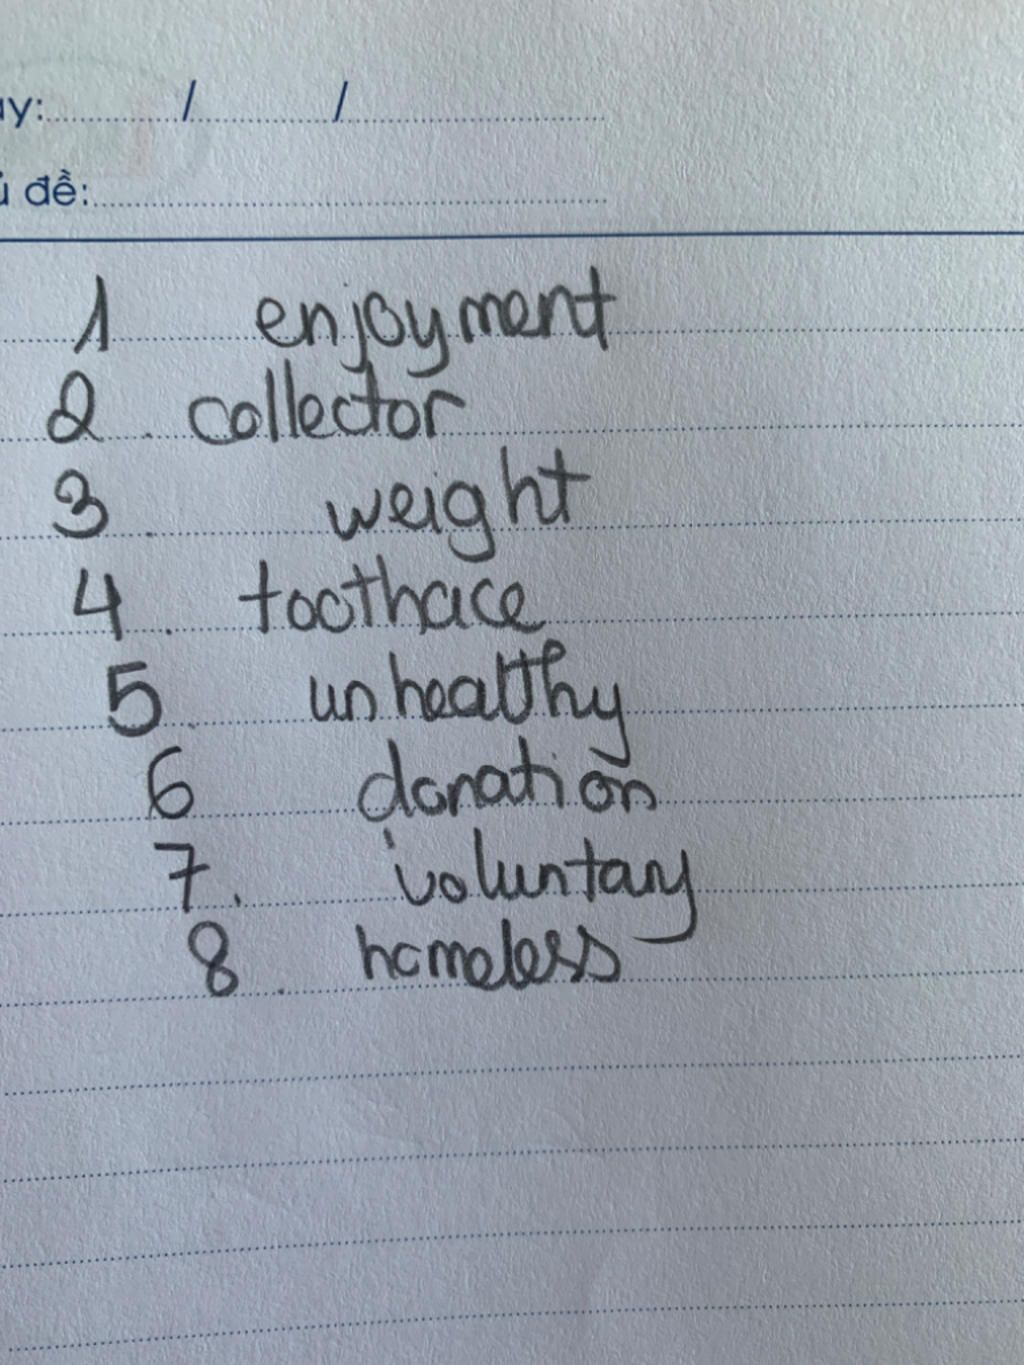 ày: / /
ủ đề:
1 enjoyment
2. collector
3. weight
4. toothace
5. unhealthy
6 donation
7. voluntary
8. homeless